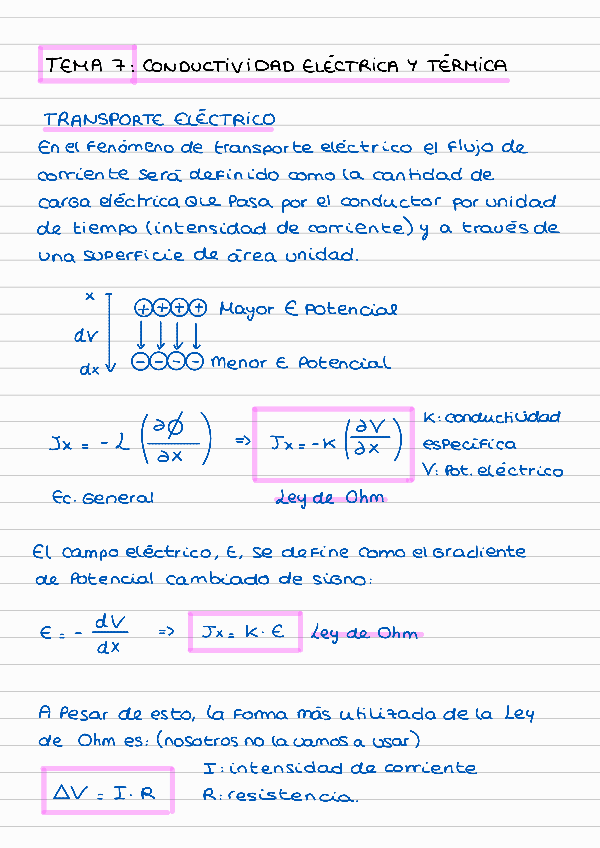 TEMA 7: CONDUCTIVIDAD ELÉCTRICA Y TÉRMICA
TRANSPORTE ELÉCTRICO
En el fenómeno de transporte eléctrico el flujo de
corriente será definido como la cantidad de
carga eléctrica que pasa por el conductor por unidad
de tiempo (intensidad de corriente) y a través de
una superficie de área unidad.
x
dV
dx
++++ Mayor E potencial
---- Menor E potencial
Jx = - L (∂Ø/∂x) => Jx = - K (∂V/∂x)
K: conductividad
específica
V: Pot. eléctrico
Ec. General
Ley de Ohm
El campo eléctrico, E, se define como el gradiente
de potencial cambiado de signo:
E = - dV/dx => Jx = K · E Ley de Ohm
A pesar de esto, la forma más utilizada de la Ley
de Ohm es: (nosotros no la vamos a usar)
ΔV = I · R
I: intensidad de corriente
R: resistencia.